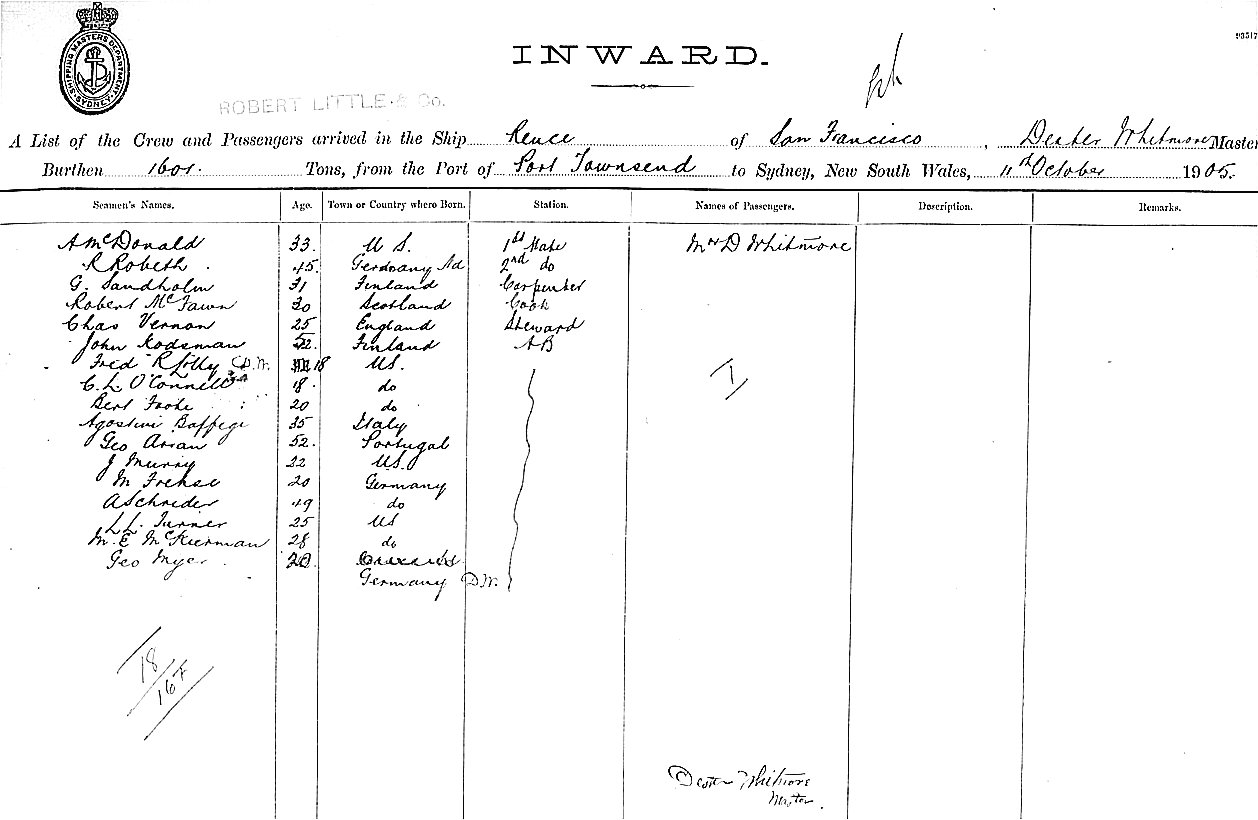 SHIPPING MASTERS DEPARTMENT SYDNEY
93517
INWARD.
ROBERT LITTLE & Co.
A List of the Crew and Passengers arrived in the Ship Rence of San Francisco, Dexter Whitmore Master
Burthen 1601. Tons, from the Port of Port Townsend to Sydney, New South Wales, 11th October 1905.
Seamen's Names. Age. Town or Country where Born. Station. Names of Passengers. Description. Remarks.
A McDonald 33. U S. 1st Mate Mrs D Whitmore
R Robeth 45. Germany 2nd do
G. Sandholm 31 Finland Carpenter
Robert McFawn 30 Scotland Cook
Chas Vernon 25 England Steward
John Kodsman 52. Finland AB
Fred R Jolly D.W. 18 U.S. I
C. L. O'Connell 18. do
Bert Foote 20 do
Agostini Baffegi 35 Italy
Geo Arian 52. Portugal
J Murry 22 U.S.
M Frehse 20 Germany
A Schneider 49 do
L L. Turner 25 U S
M. E McKiernan 28 do
Geo Myer 20
Germany D.W.
18
16+
Dexter Whitmore
Master.